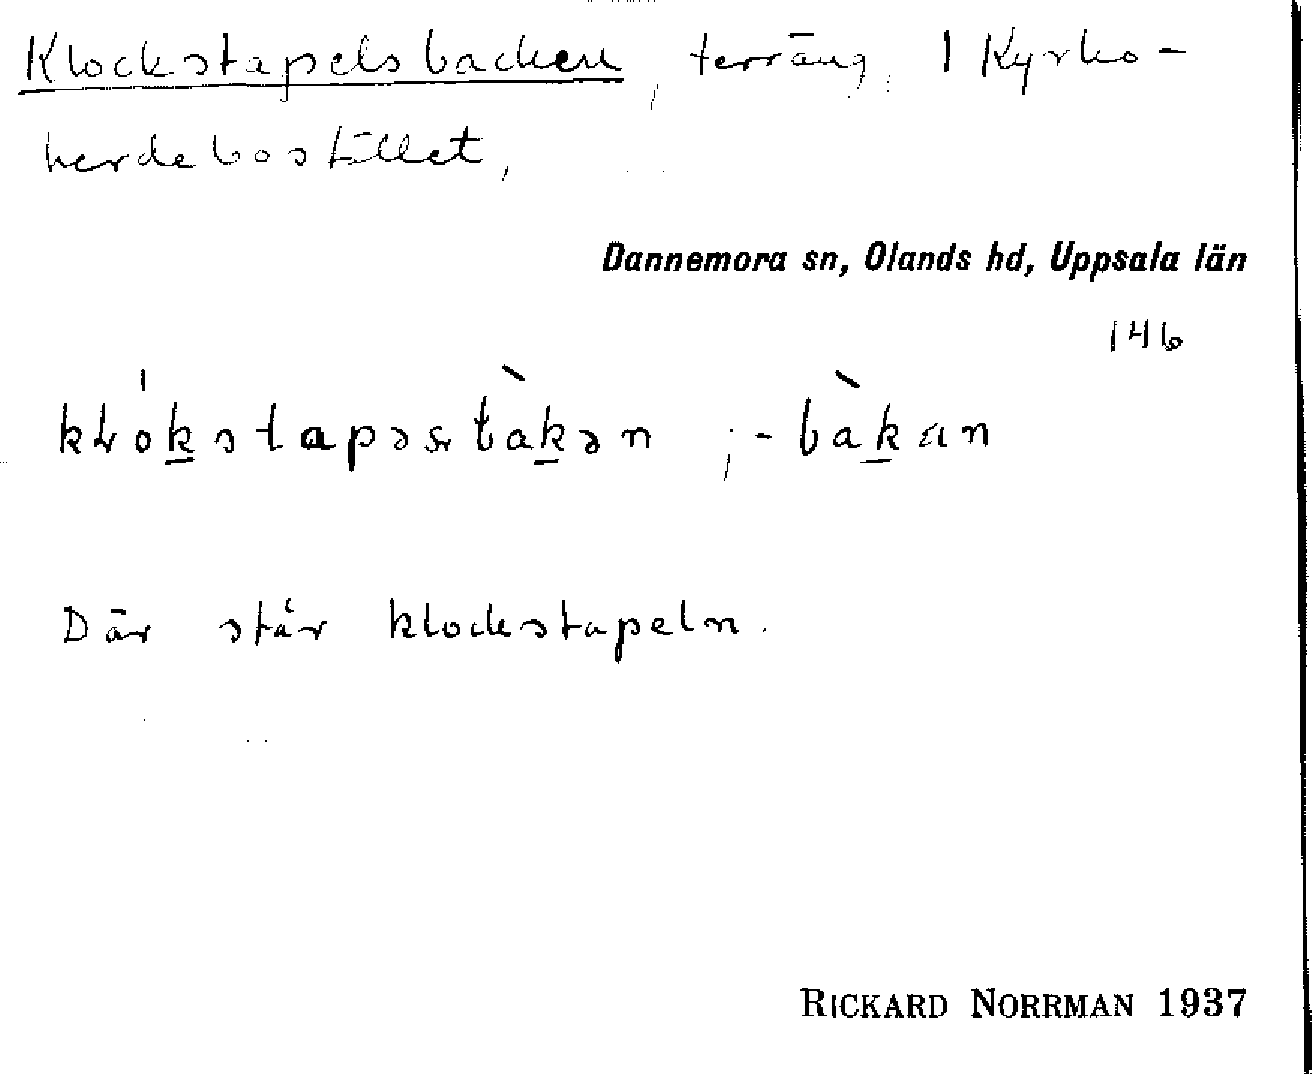 Klockstapelsbacken, terräng, 1 Kyrko-
herdebostället,
Dannemora sn, Olands hd, Uppsala län
146
-bàkan
Där står klockstapeln.
RICKARD NORRMAN 1937